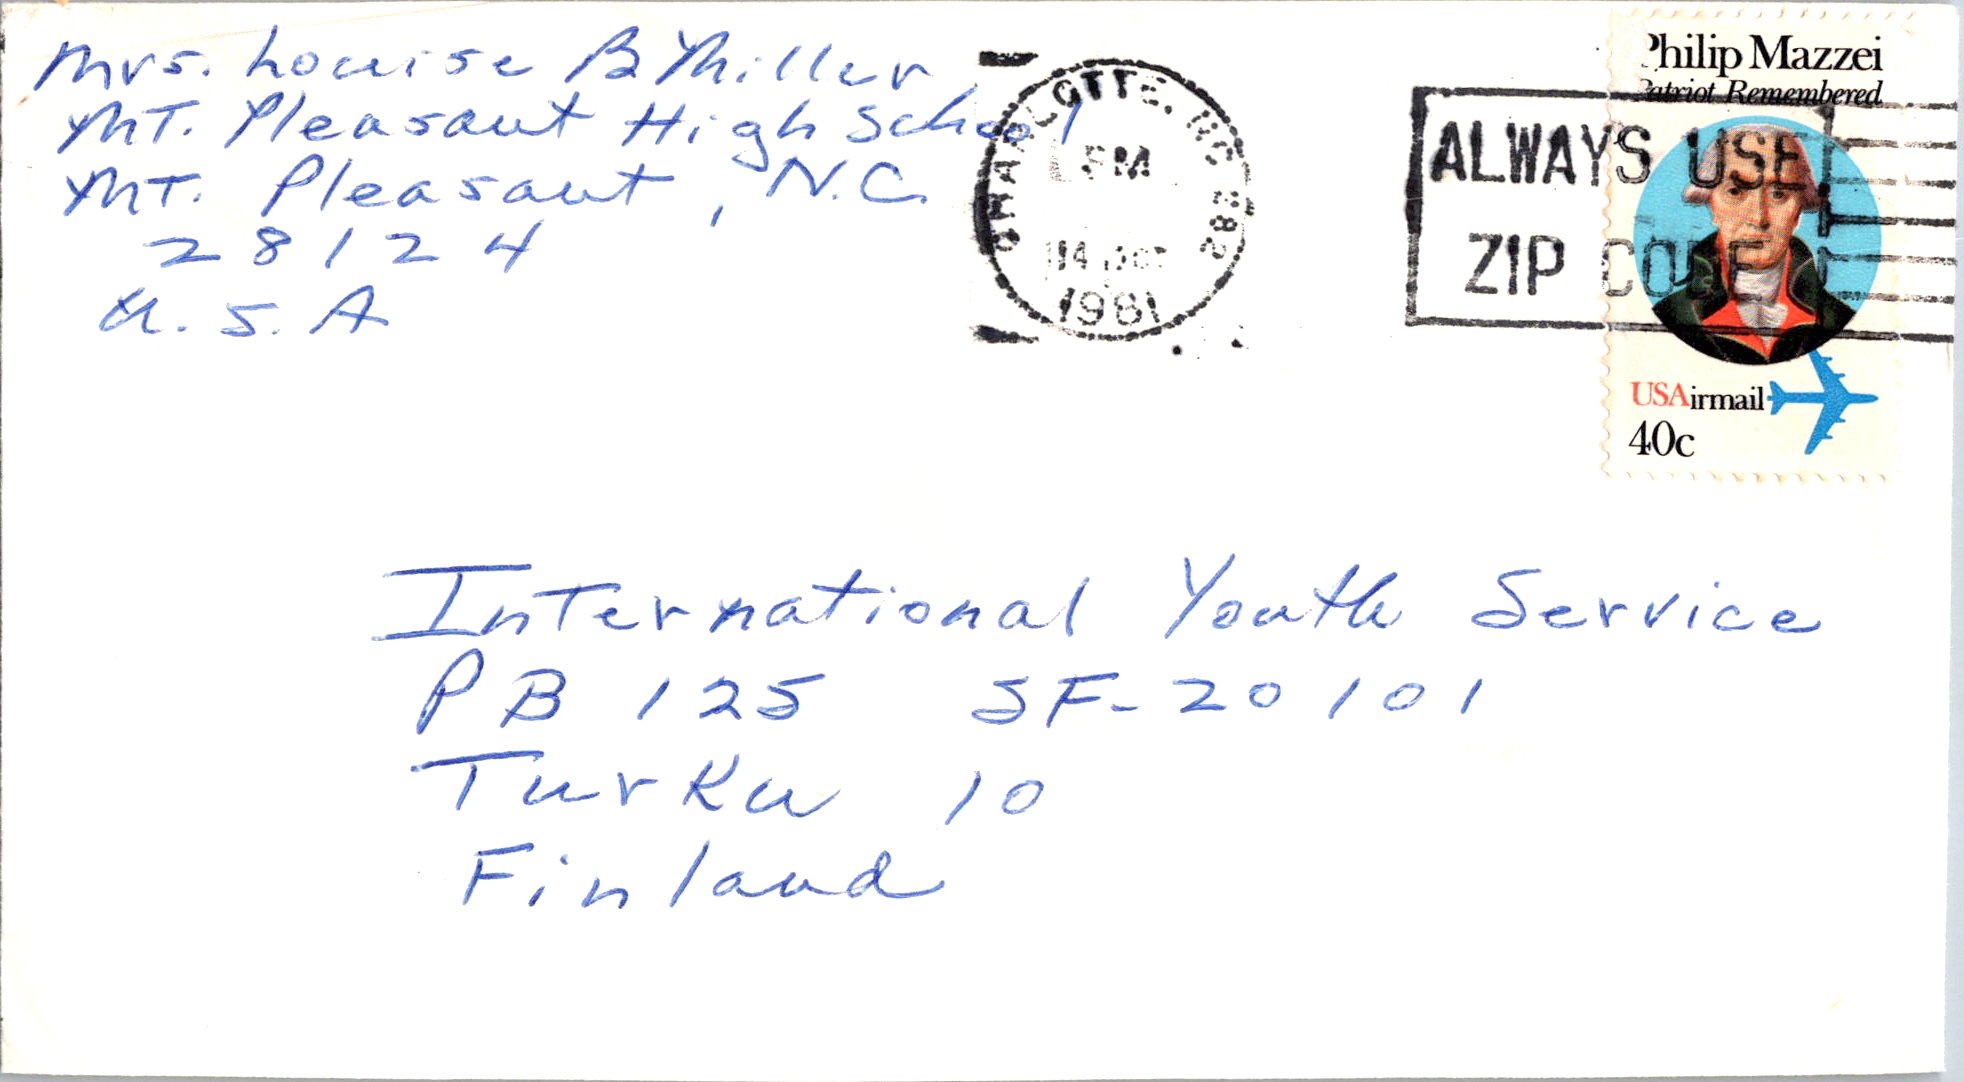 Mrs. Louise B Miller
MT. Pleasant High School
MT. Pleasant, N.C.
28124
U.S.A
CHARLOTTE, NC 282
PM
14
1981
ALWAYS USE
ZIP CODE
Philip Mazzei
Patriot Remembered
USAirmail
40c
International Youth Service
PB 125 SF-20101
Turku 10
Finland